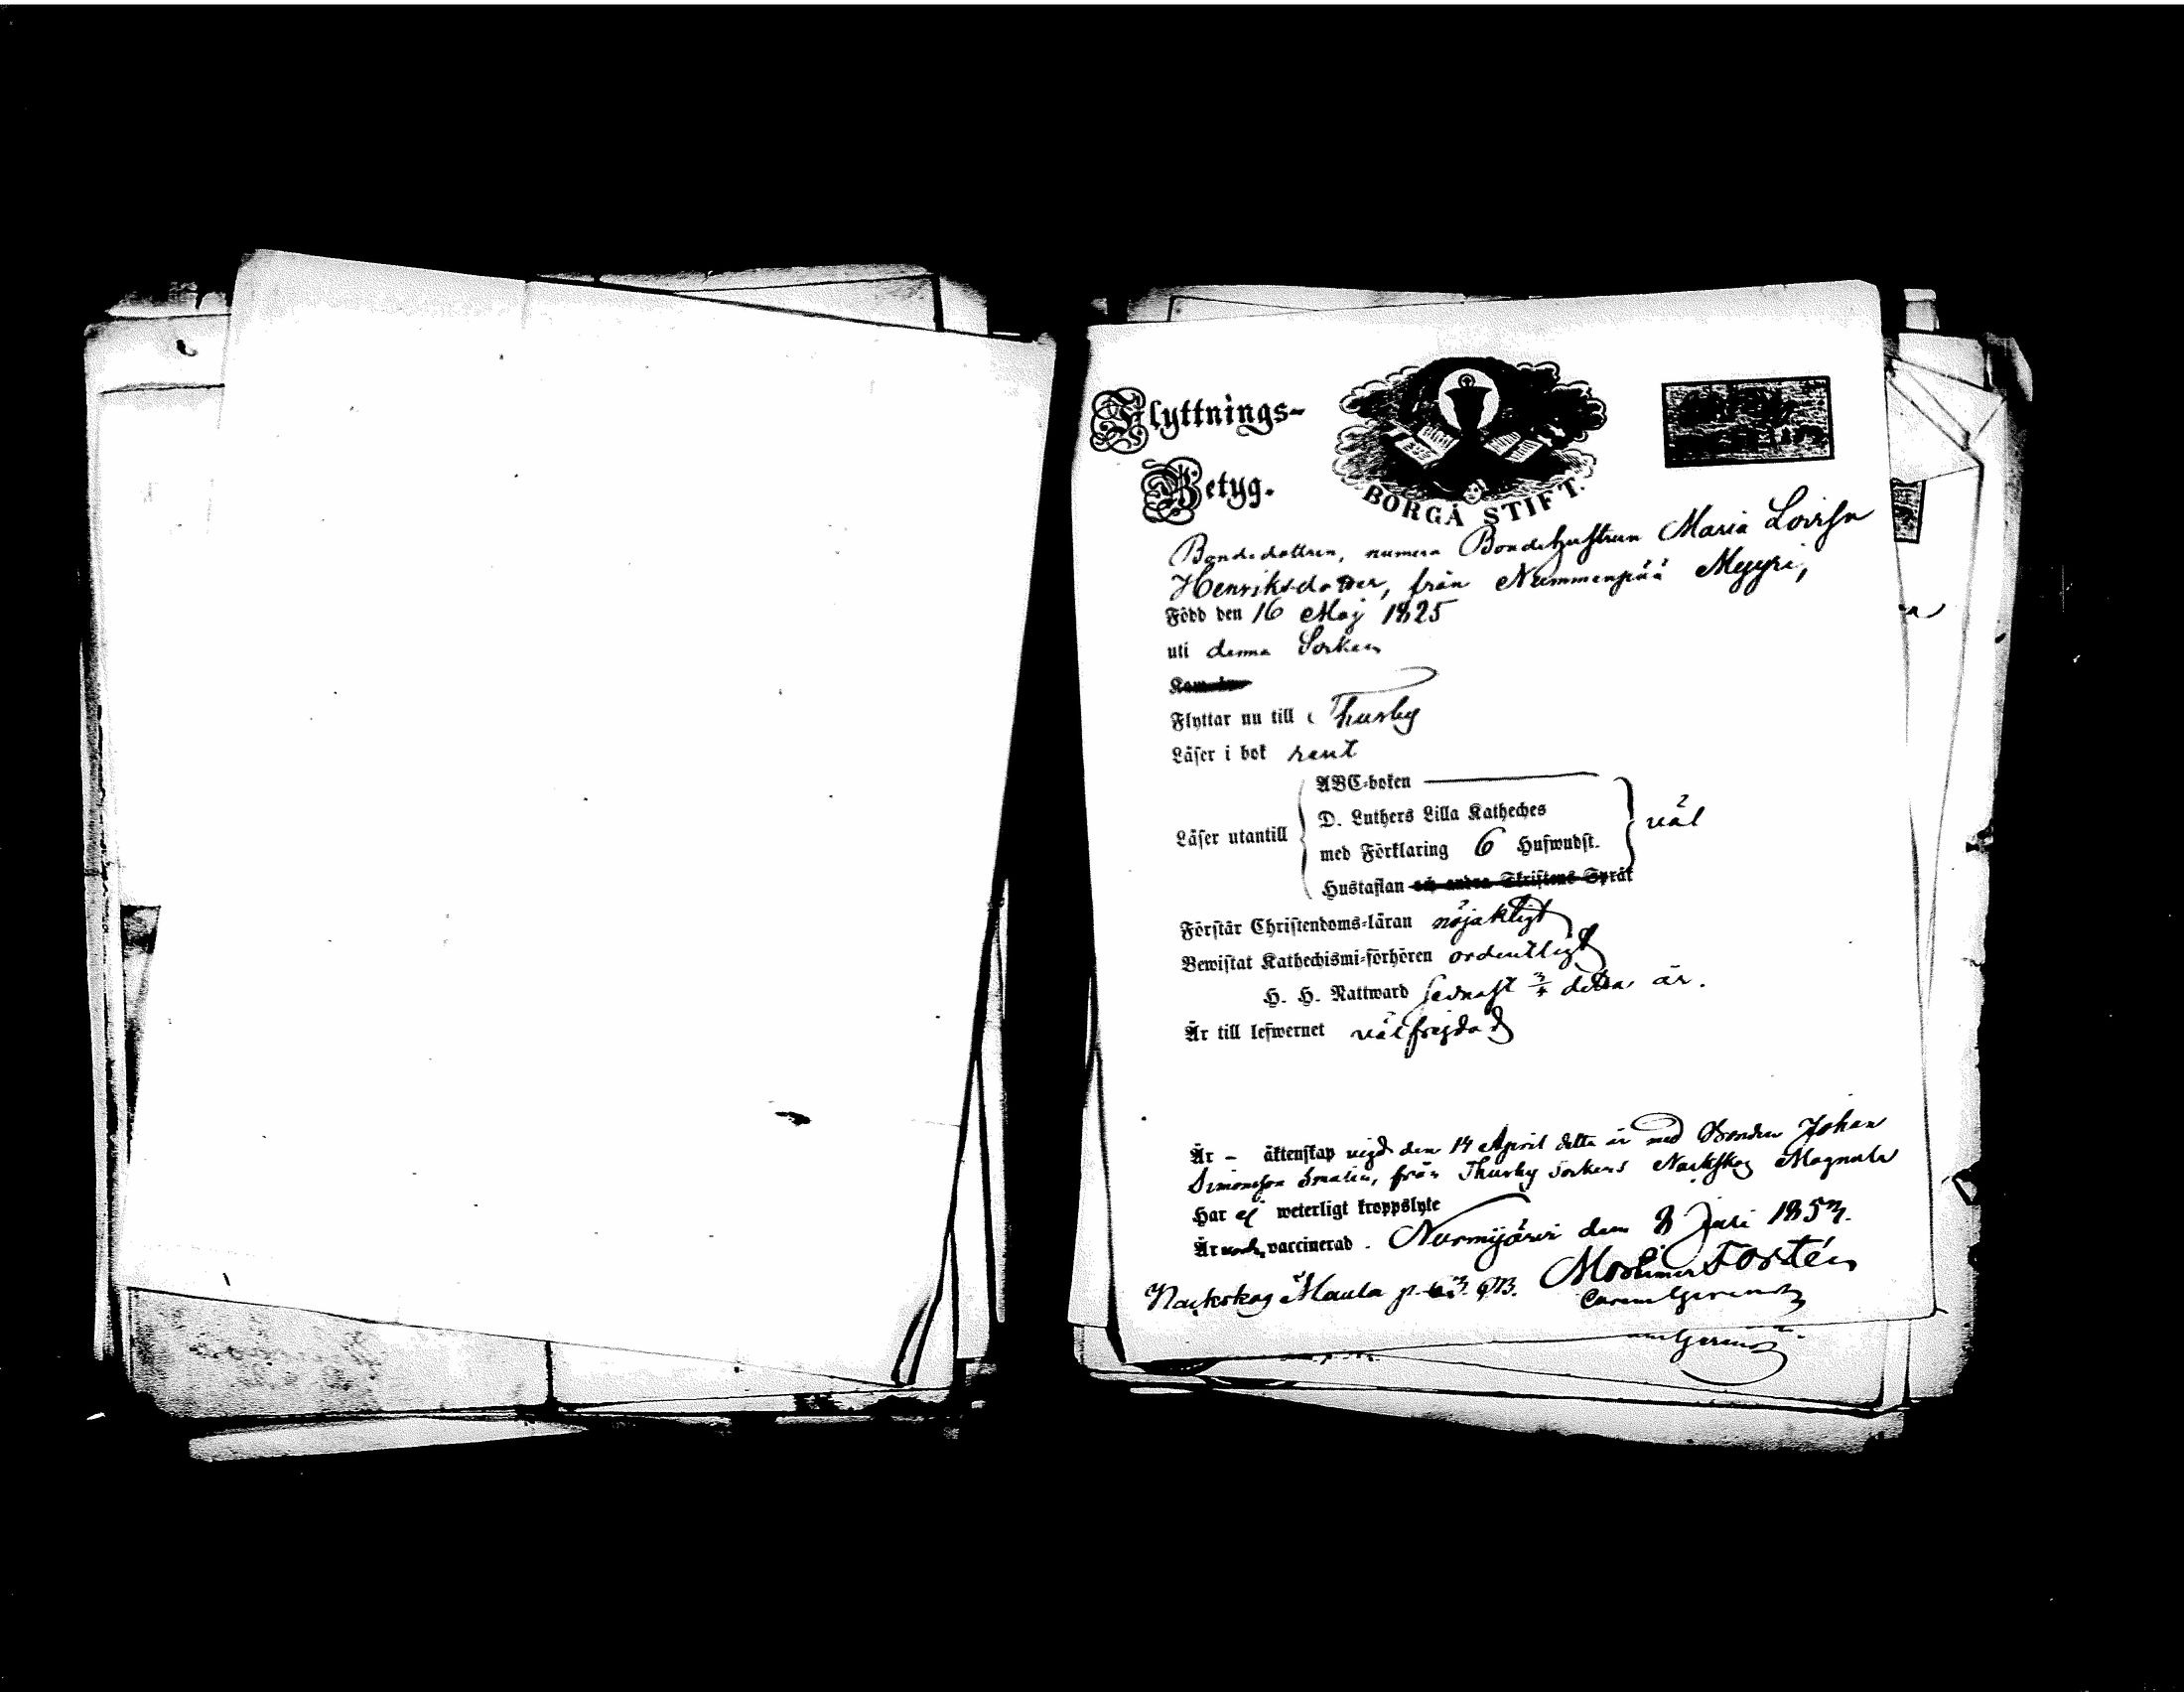 Flyttnings-
Betyg.
BORGÅ STIFT.
Bondedottren, numera Bondehustrun Maria Lovisa
Henriksdotter, från Nummenpää Myyri,
Född den 16 Maj 1825
uti denna Socken
Flyttar nu till Thusby
Läser i bok rent
Läser utantill
ABC-boken
D. Luthers Lilla Katheches
med Förklaring 6 Hufwudst.
Hustaflan och andra Skriftens Språk
väl
Förstår Christendoms-läran nöjaktligt
Bewistat Kathechismi-förhören ordentligt
H. H. Nattward senast detta år.
Är till lefwernet välfrejdad
Är - äktenskap vigd den 14 April detta år med Bonden Johan
Simonsson från Thusby Sockens Nackskog Magnula
Har ej weterligt kroppslyte
Är vaccinerad. Nurmijärvi den 8 Juni 1853.
Nackskog Maula p. 63. Forstén